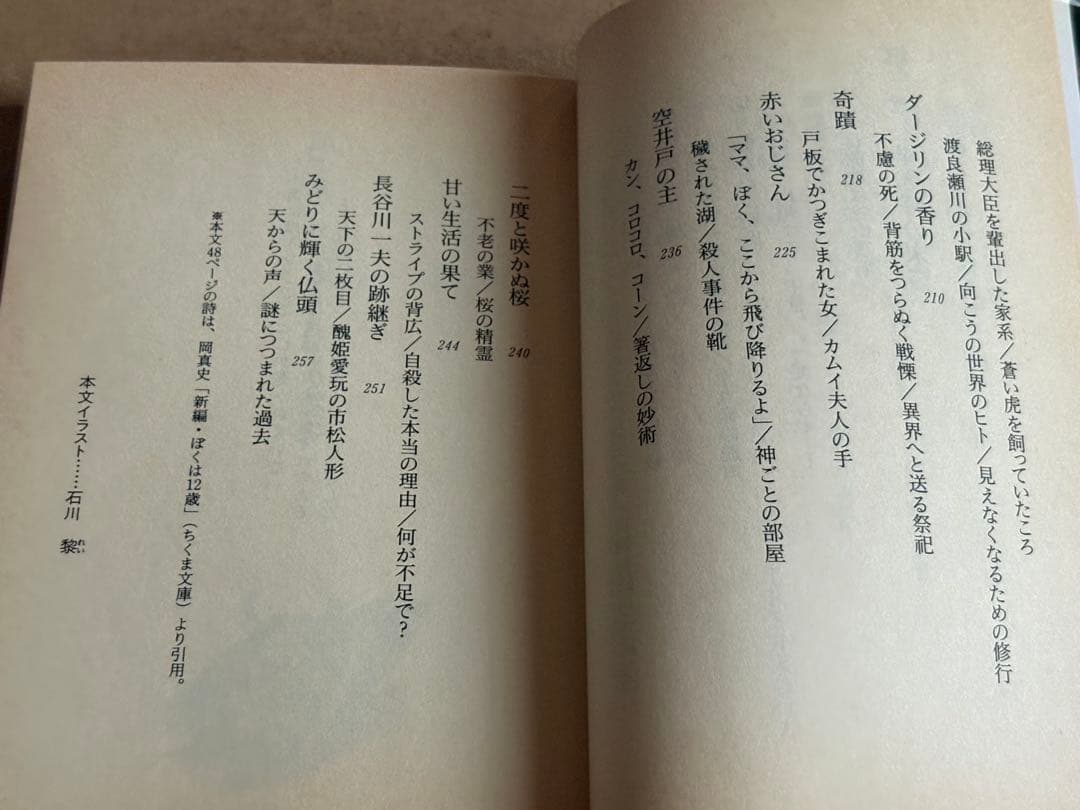 総理大臣を輩出した家系／蒼い虎を飼っていたころ
渡良瀬川の小駅／向こうの世界のヒト／見えなくなるための修行
ダージリンの香り 210
不慮の死／背筋をつらぬく戦慄／異界へと送る祭祀
奇蹟 218
戸板でかつぎこまれた女／カムイ夫人の手
赤いおじさん 225
「ママ、ぼく、ここから飛び降りるよ」／神ごとの部屋
穢された湖／殺人事件の靴
空井戸の主 236
カン、コロコロ、コーン／箸返しの妙術
二度と咲かぬ桜 240
不老の業／桜の精霊
甘い生活の果て 244
ストライプの背広／自殺した本当の理由／何が不足で？
長谷川一夫の跡継ぎ 251
天下の二枚目／醜姫愛玩の市松人形
みどりに輝く仏頭 257
天からの声／謎につつまれた過去
※本文48ページの詩は、岡真史「新編・ぼくは12歳」（ちくま文庫）より引用。
本文イラスト……石川 黎れい